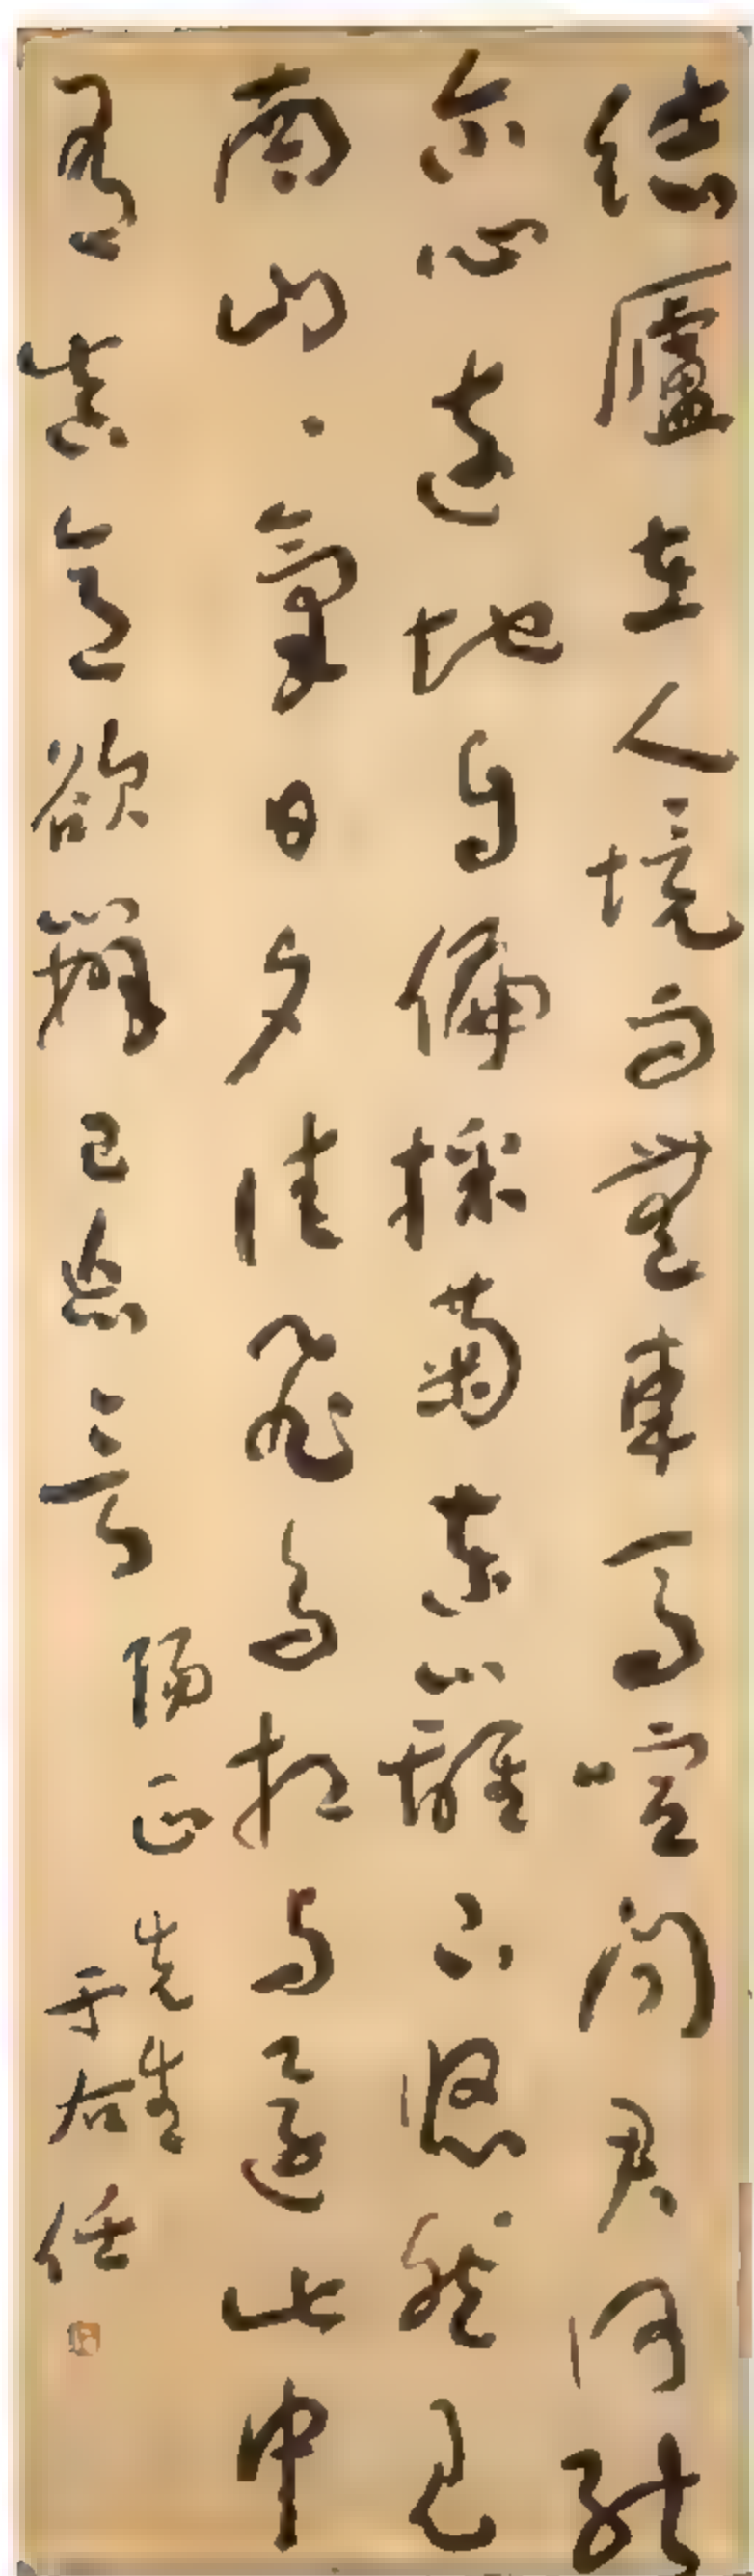 結廬在人境而無車馬喧問君何能
尔心遠地自偏採菊東籬下悠然見
南山、氣日夕佳飛鳥相與還此中
有真意欲辯已忘言
陽正先生
于右任